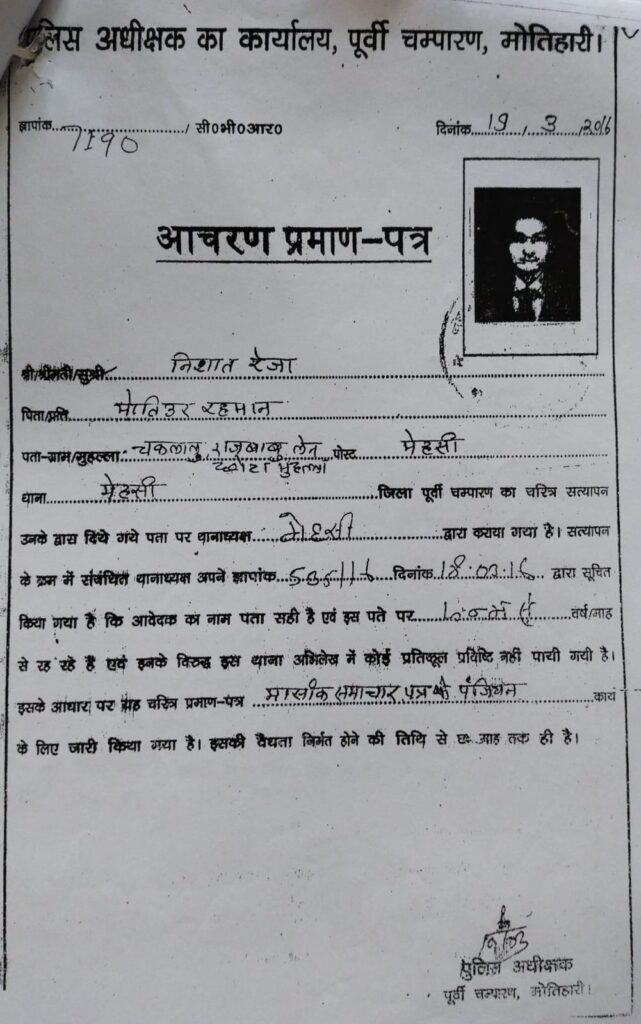 पुलिस अधीक्षक का कार्यालय, पूर्वी चम्पारण, मोतिहारी।
ज्ञापांक 7190 / सी०भी०आर० दिनांक 19 / 3 / 2016
आचरण प्रमाण-पत्र
श्री/श्रीमती/सुश्री निशात रेजा
पिता/पति मोतिउर रहमान
पता-ग्राम/मुहल्ला: चकलालु राजुबाबु लेन पोस्ट मेहसी
मुहल्ला
थाना मेहसी जिला पूर्वी चम्पारण का चरित्र सत्यापन
उनके द्वारा दिये गये पता पर थानाध्यक्ष मेहसी द्वारा कराया गया है। सत्यापन
के क्रम में संबंधित थानाध्यक्ष अपने ज्ञापांक दिनांक 18.03.16 द्वारा सूचित
किया गया है कि आवेदक का नाम पता सही है एवं इस पते पर वर्ष/माह
से रह रहे हैं एवं इनके विरुद्ध इस थाना अभिलेख में कोई प्रतिकूल प्रविष्टि नहीं पायी गयी है।
इसके आधार पर यह चरित्र प्रमाण-पत्र मासीक समाचार पत्र के पंजियन कार्य
के लिए जारी किया गया है। इसकी वैधता निर्गत होने की तिथि से छः माह तक ही है।
पुलिस अधीक्षक
पूर्वी चम्पारण, मोतिहारी।